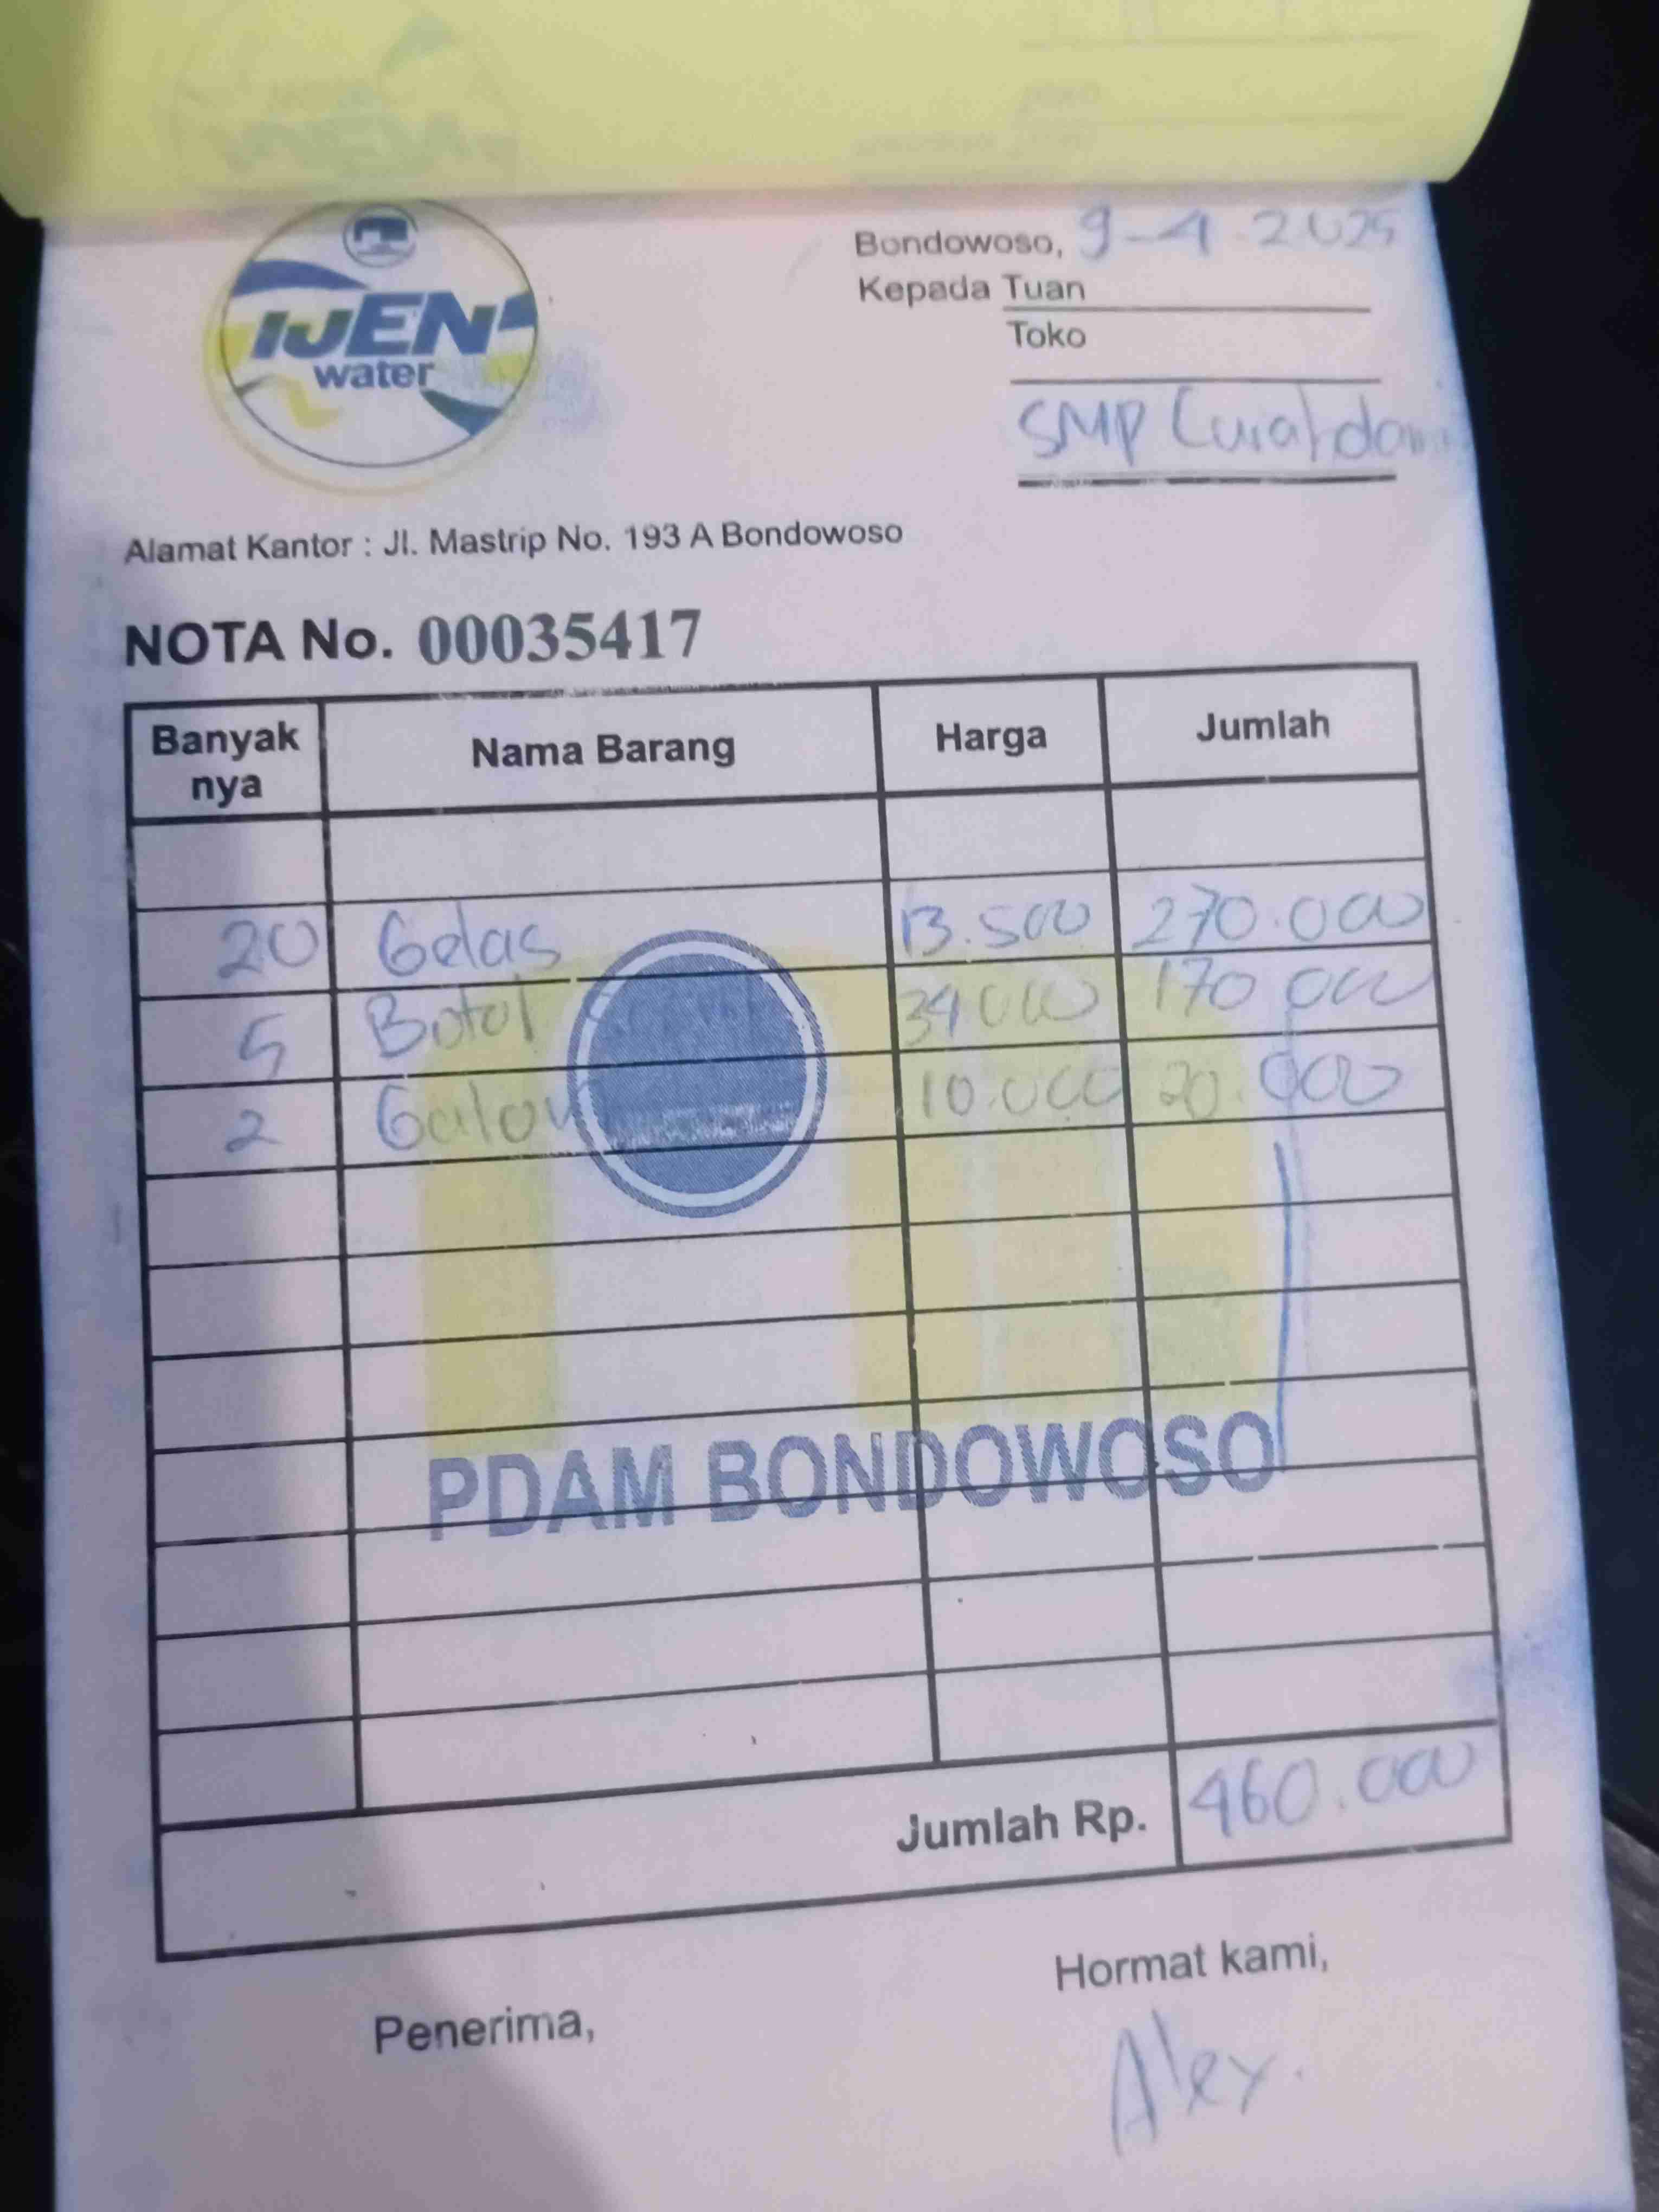 IJEN
water
Bondowoso, 9-4-2025
Kepada Tuan
Toko
SMP
Alamat Kantor : Jl. Mastrip No. 193 A Bondowoso
NOTA No. 00035417
Banyak nya Nama Barang Harga Jumlah
20 Gelas 13.500 270.000
5 Botol 34000 170 000
2 Galon 10.000 20.000
PDAM BONDOWOSO
Jumlah Rp. 460.000
Penerima,
Hormat kami,
Alex.